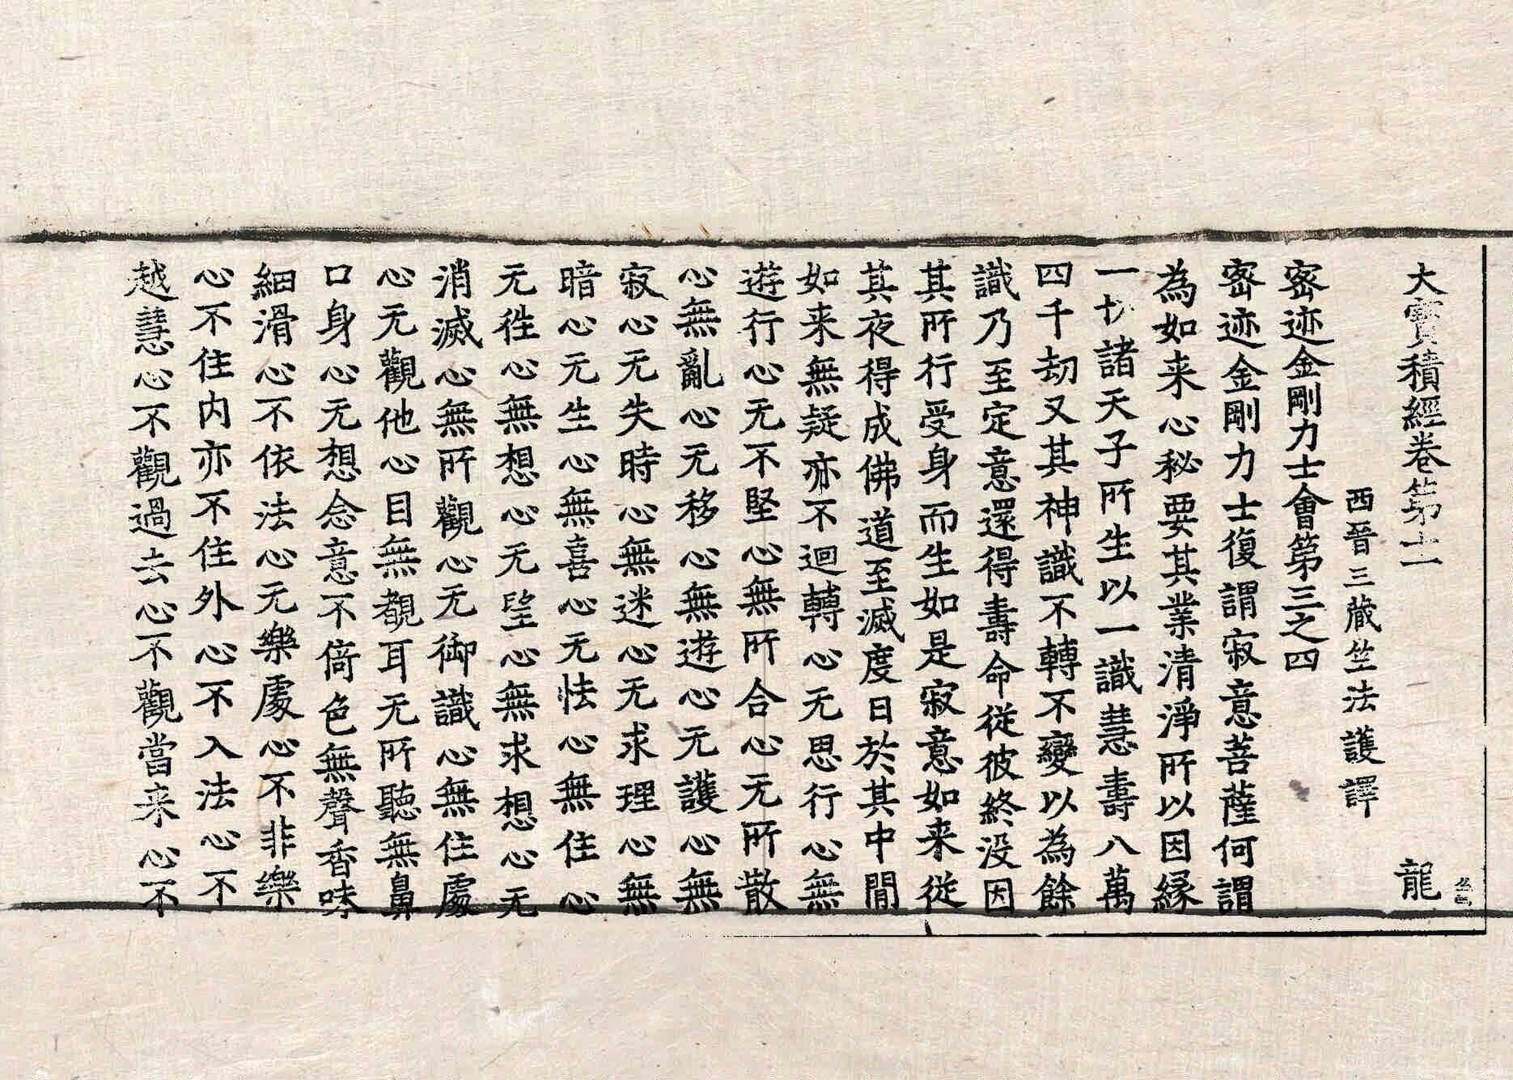 大寳積經卷第十一 龍
西晉三藏竺法護譯
密迹金剛力士會第三之四
密迹金剛力士復謂寂意菩薩何謂
為如来心秘要其業清淨所以因緣
一切諸天子所生以一識慧壽八萬
四千劫又其神識不轉不變以為餘
識乃至定意還得壽命從彼終没因
其所行受身而生如是寂意如来從
其夜得成佛道至滅度日於其中間
如来無疑亦不迴轉心无思行心無
遊行心无不堅心無所合心无所散
心無亂心无移心無遊心无護心無
寂心无失時心無迷心无求理心無
暗心无生心無喜心无怯心無住心
无徃心無想心无望心無求想心无
消滅心無所觀心无御識心無住處
心无觀他心目無覩耳无所聽無鼻
口身心无想念意不倚色無聲香味
細滑心不依法心元樂處心不非樂
心不住内亦不住外心不入法心不
越慧心不觀過去心不觀當来心不